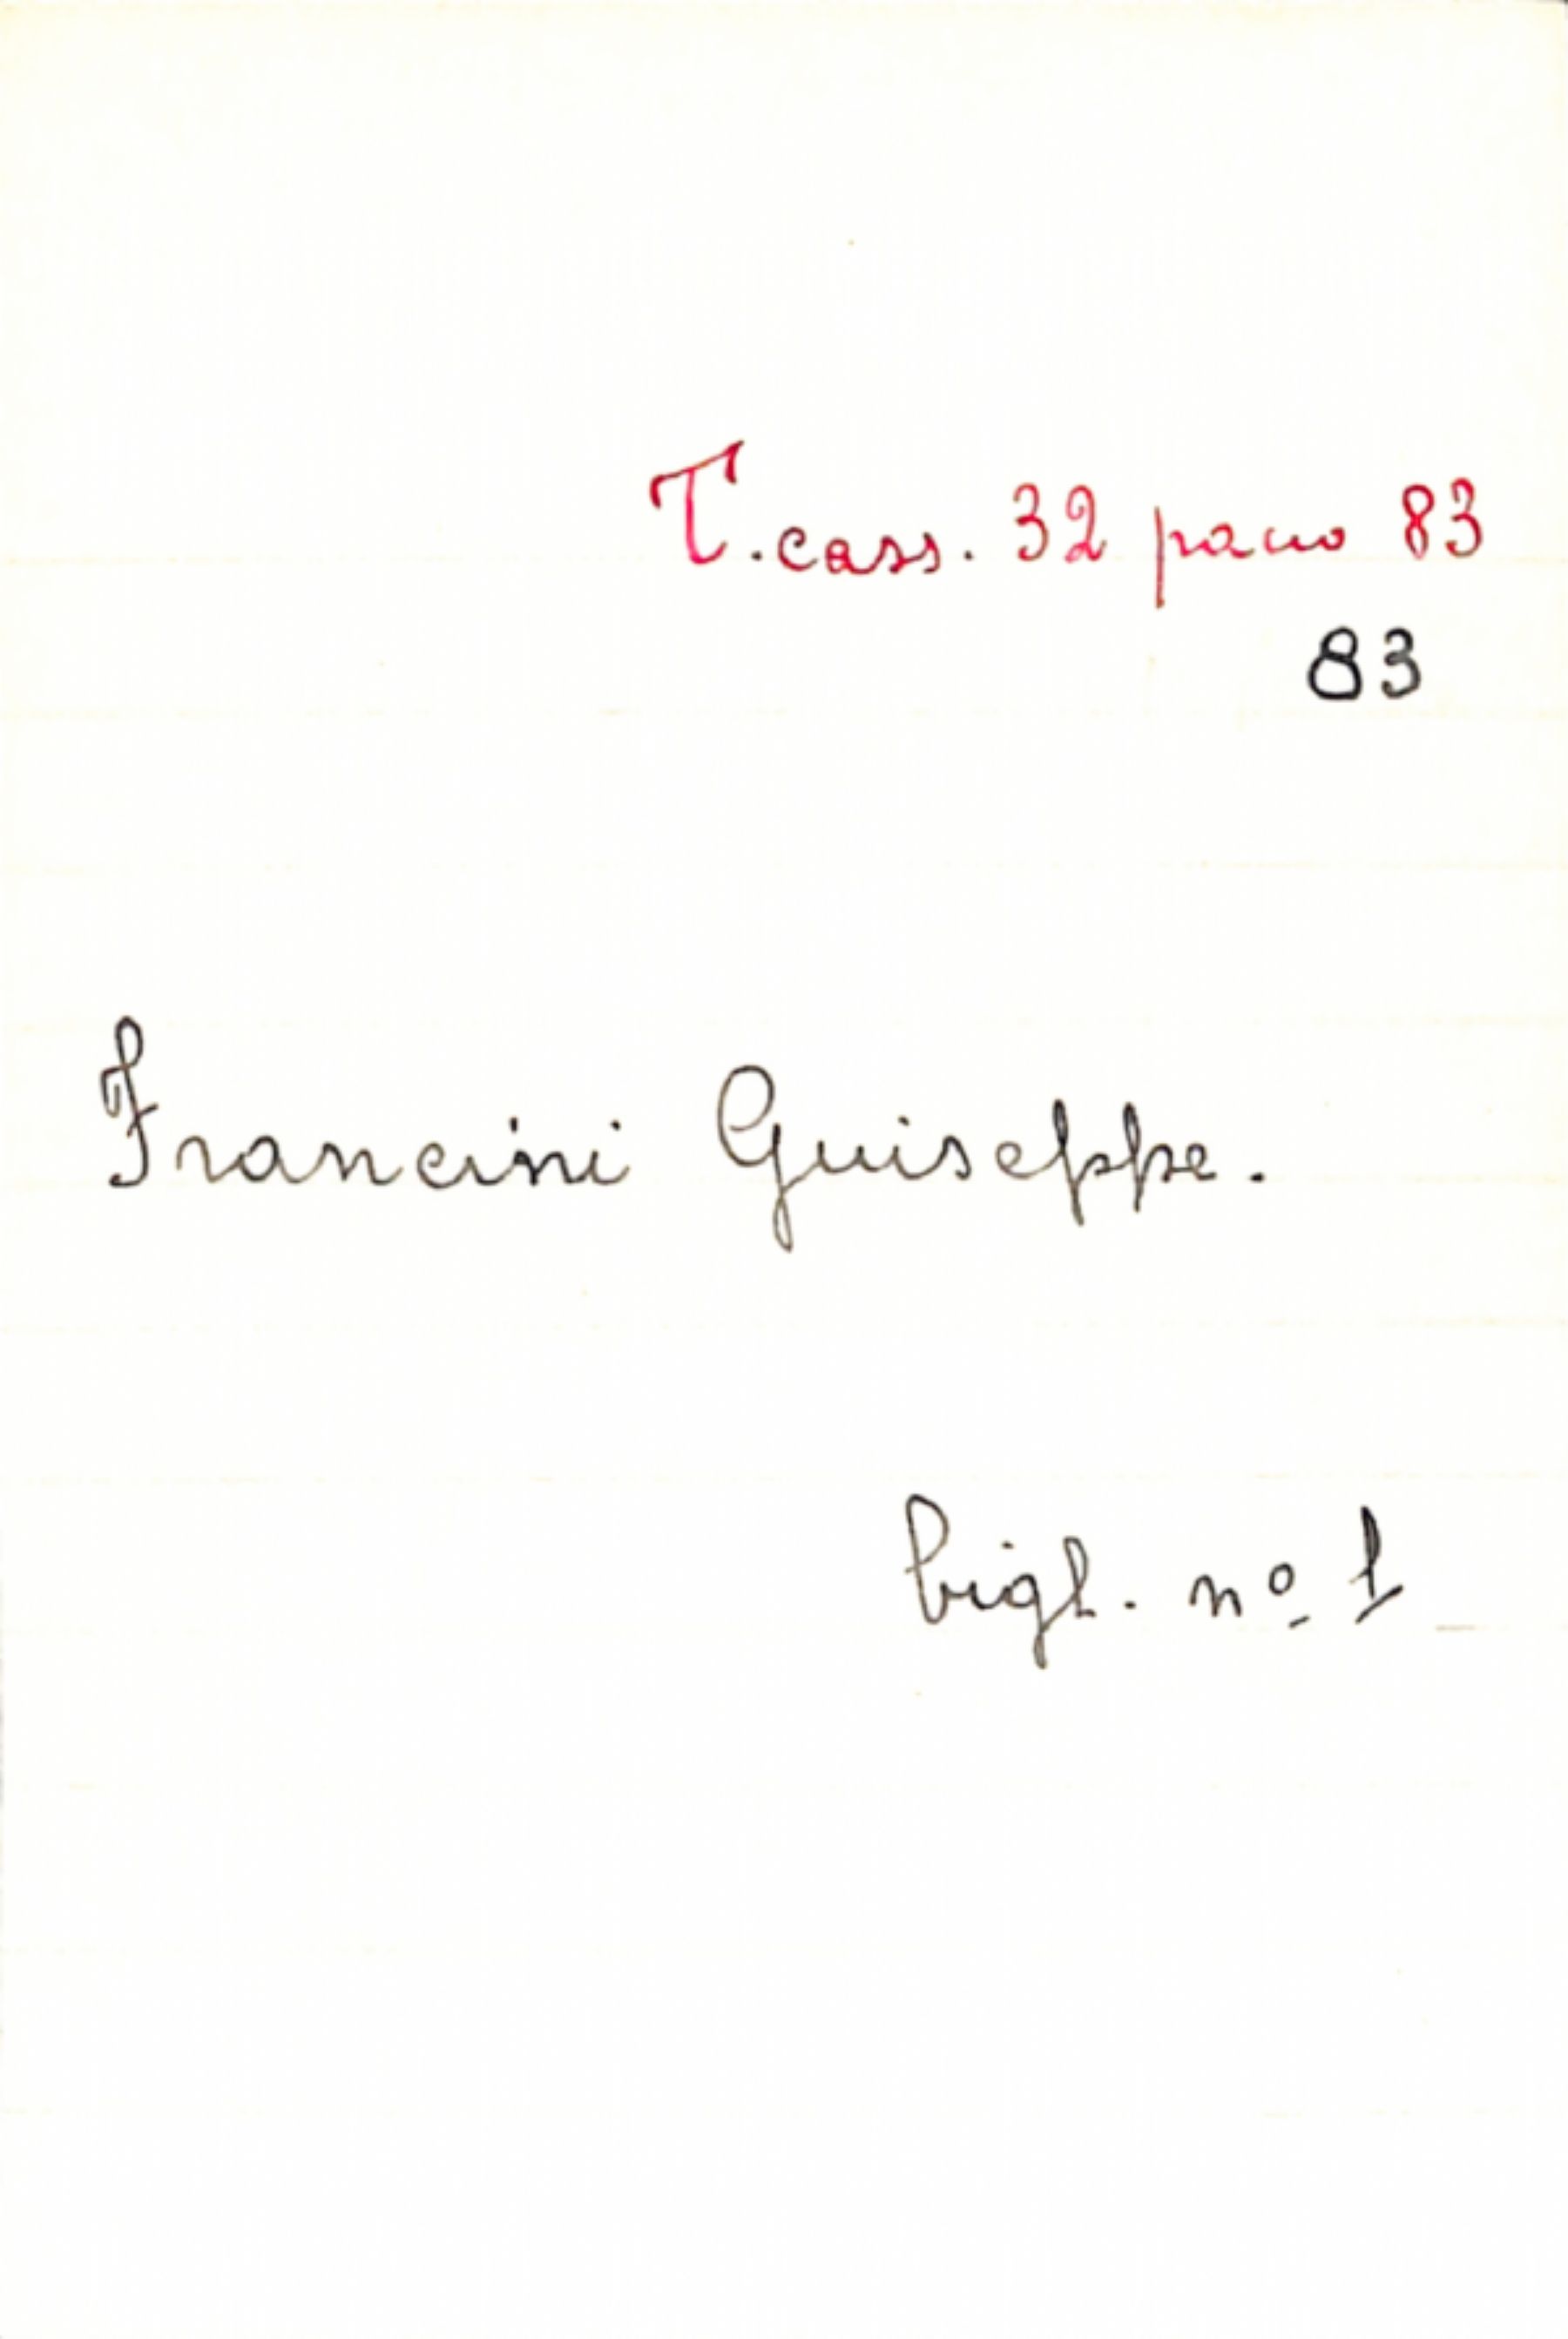 T. cass. 32 pacco 83
83
Francini Guiseppe.
bigl. nº 1